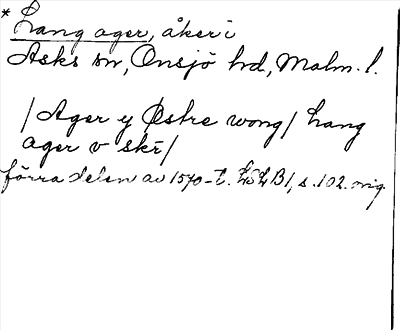 * Lang ager, åker i
Asks sn, Onsjö hd, Malm. l.
/Ager y Østre wong/ Lang
ager v skē/
förra delen av 1570-t. LöLB 1, s. 102. orig.